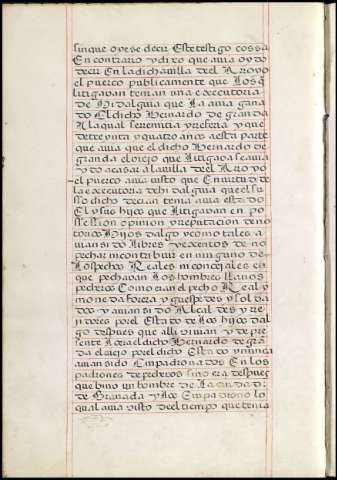 sin que oyese decir Este testigo cossa
En contrario y dixo que auia oydo
decir En la dicha uilla deel Arroyo
el puerco publicamente que Los q̃
Litigauan tenian una executoria
de Hidalguia que La auia gana
do El dicho Bernardo de granda
A la qual se remitia y referia y que
de treynta y quatro años a esta parte
que auia que el dicho Bernardo de
granda el uiejo que Litigaua se auia
ydo a casar a la uilla deel Arroyo
el puerco auia uisto que En uirtud de
la executoria de hidalguia que el su
sodicho decian tenia auia estado
El y sus hijos que Litigauan en po
session opinion y reputacion de no
torios Hijos dalgo y como tales a
uian sido Libres y exentos de no
pechar ni contribuir en ninguno de
Los pechos Reales ni concejales en
que pechauan Los hombres llanos
pecheros Como eran el pecho Real y
moneda forera y guespedes y solda
dos y auian sido Alcaldes y re
jidores por el Estado de Los hijos dal
go despues que alli uiuian y de pre
sente Lo era el dicho Bernardo de gra
da el uiejo por el dicho Estado y nunca
auian sido Empadronados En los
padrones de pecheros sino era despues
que bino un hombre de La ciudad
de Granada y Los Empadrono lo
qual auia uisto deel tiempo que tenia